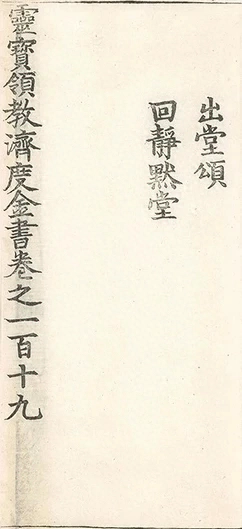 出堂頌
回靜黙堂
靈寳領教濟度金書卷之一百十九